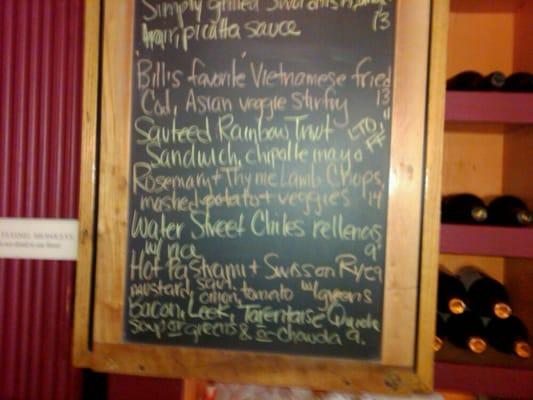 Simply grilled Swordfish,
13
picatta sauce
"Bill's favorite" Vietnamese fried
Cod, Asian veggie stirfry 13
Sauteed Rainbow Trout LTO,
Sandwich, chipotle mayo FF 11
Rosemary + Thyme Lamb Chops,
mashed potato + veggies 14
Water Street Chiles rellenos
w/ rice 9
Hot Pastrami + Swiss on Rye 9
mustard, saut. onion, tomato w/ greens
Bacon, Leek, Tarentaise Quiche
soup or greens &
9.
FLYING MONKEYS